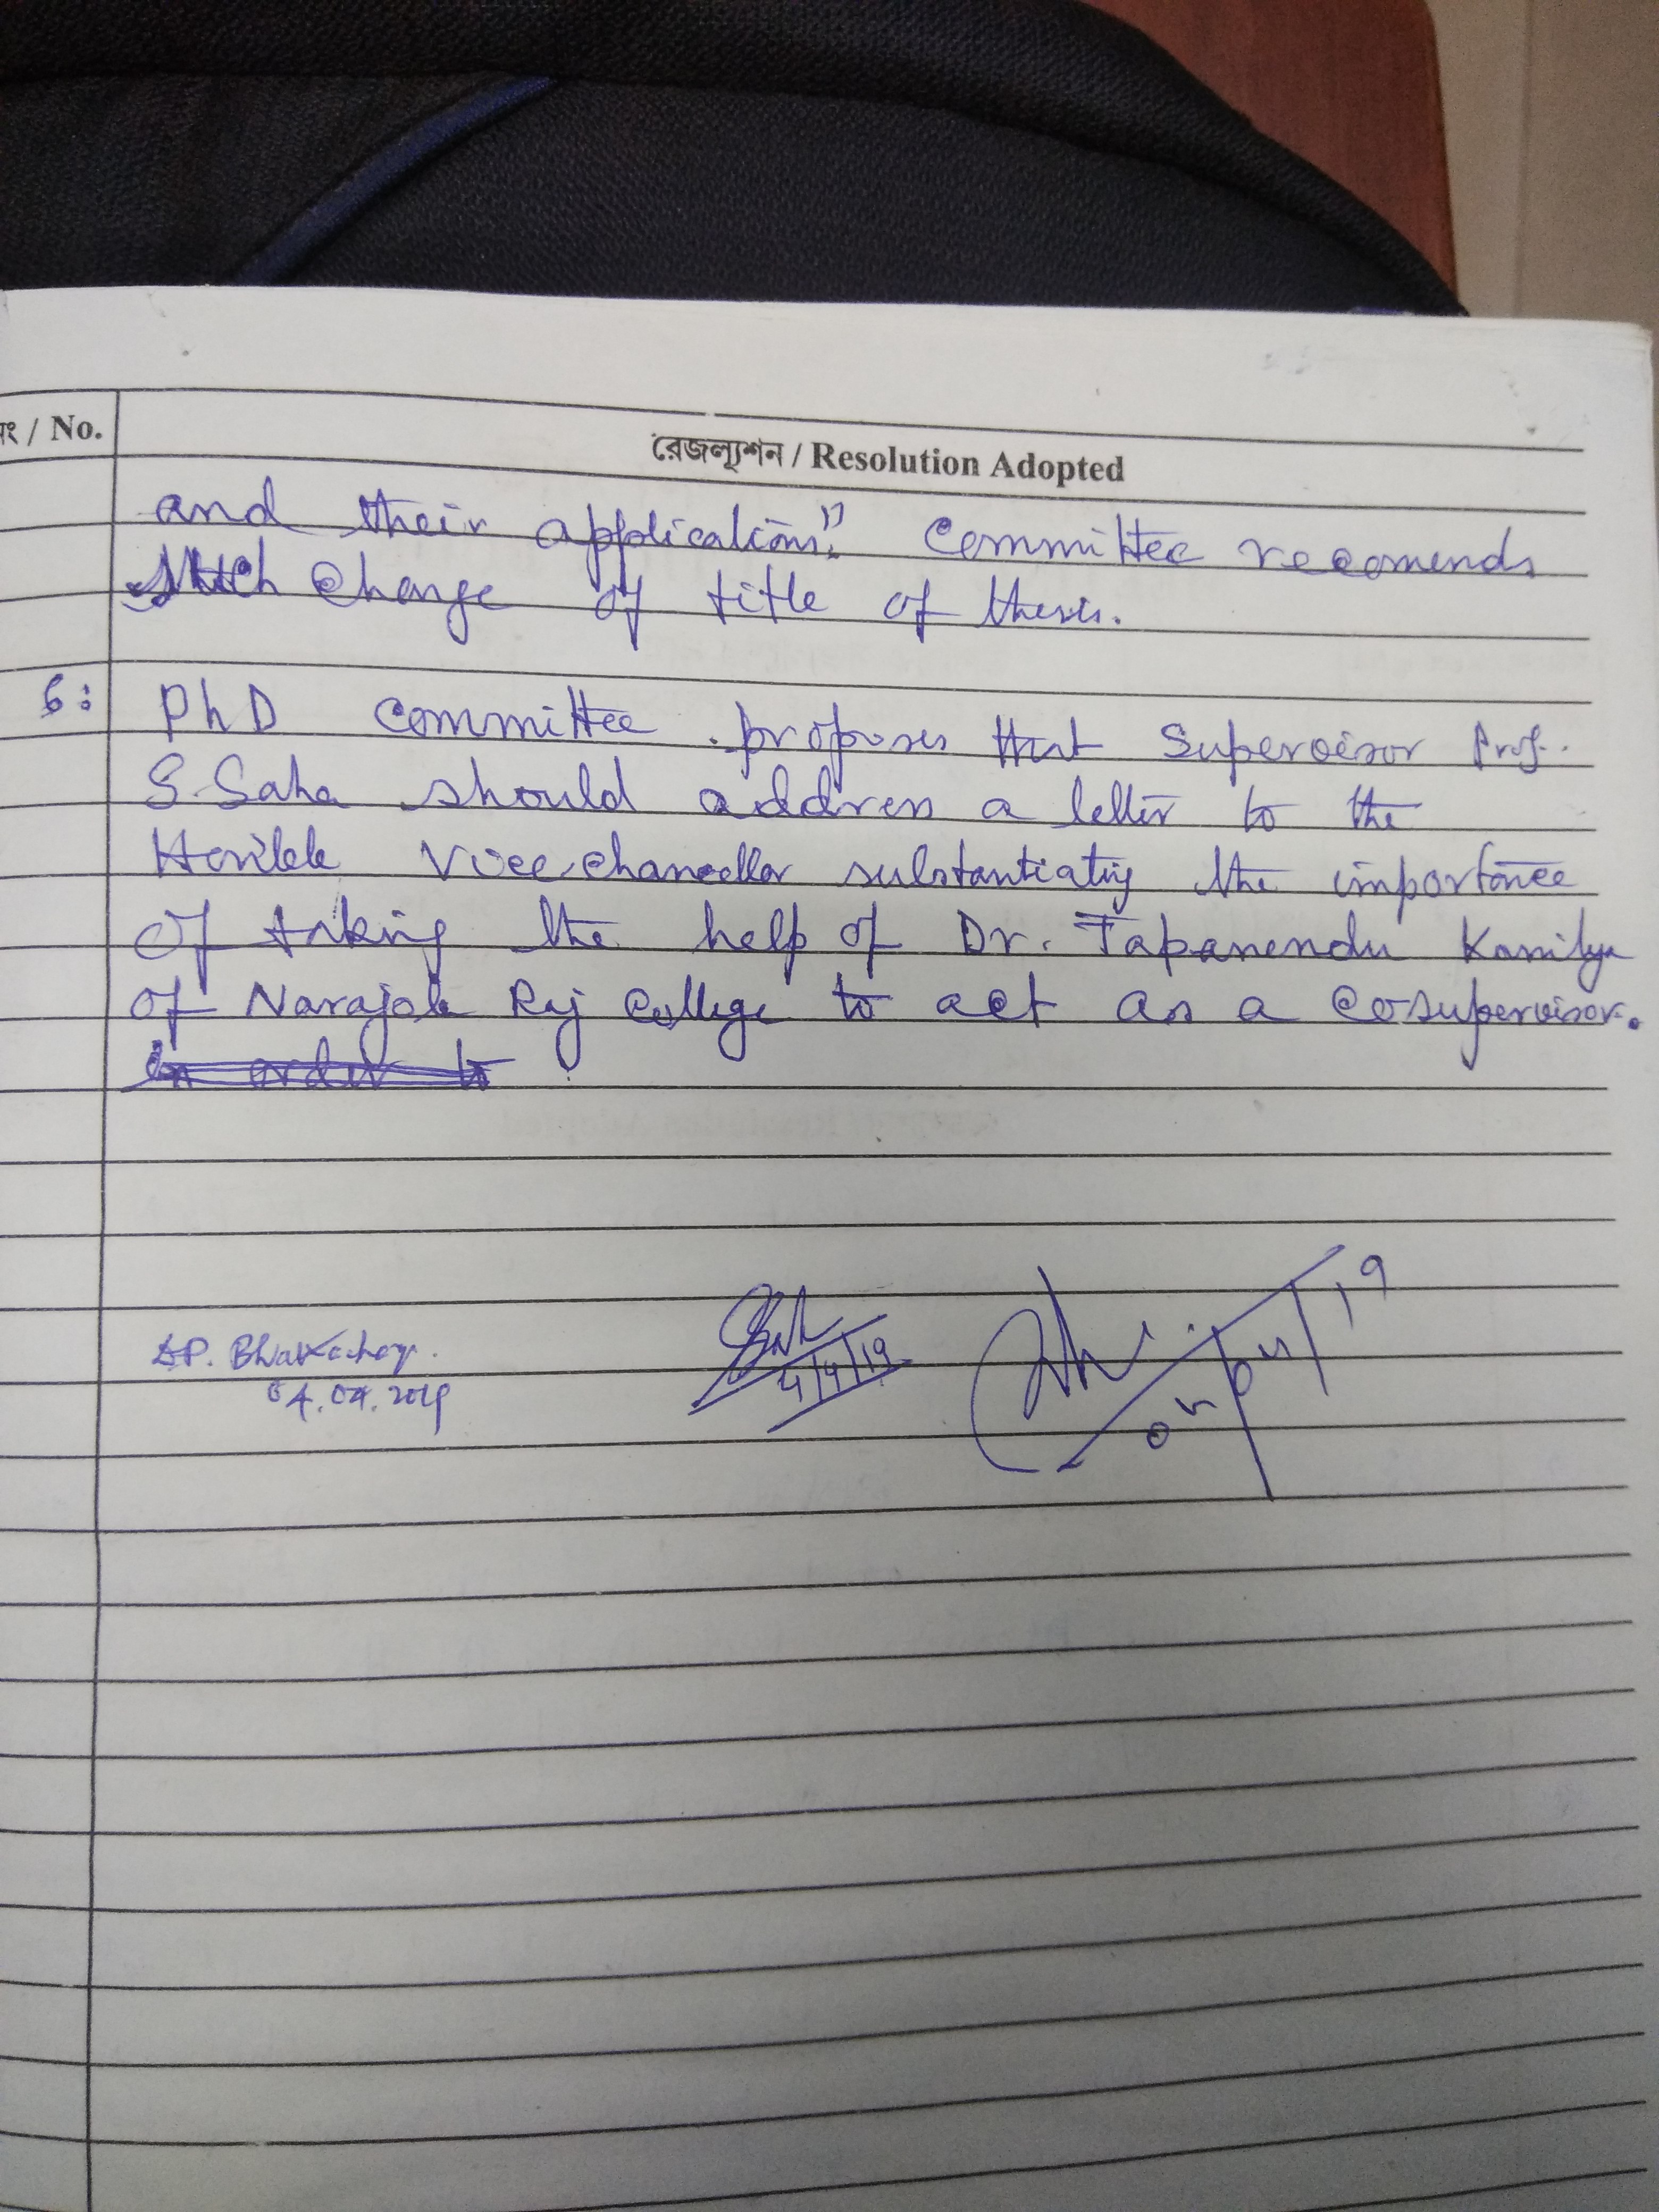 নং / No.
রেজল্যুশন / Resolution Adopted
and their applications". Committee recomends
such change of title of thesis.
6: PhD committee proposes that Supervisor Prof.
S. Saha should address a letter to the
Hon'ble Vice-chancellor substantiating the importance
of taking the help of Dr. Tapanendu Kamilya
of Narajole Raj College to act as a cosupervisor.
in order to
04.04.2019
4/4/19
04/04/19